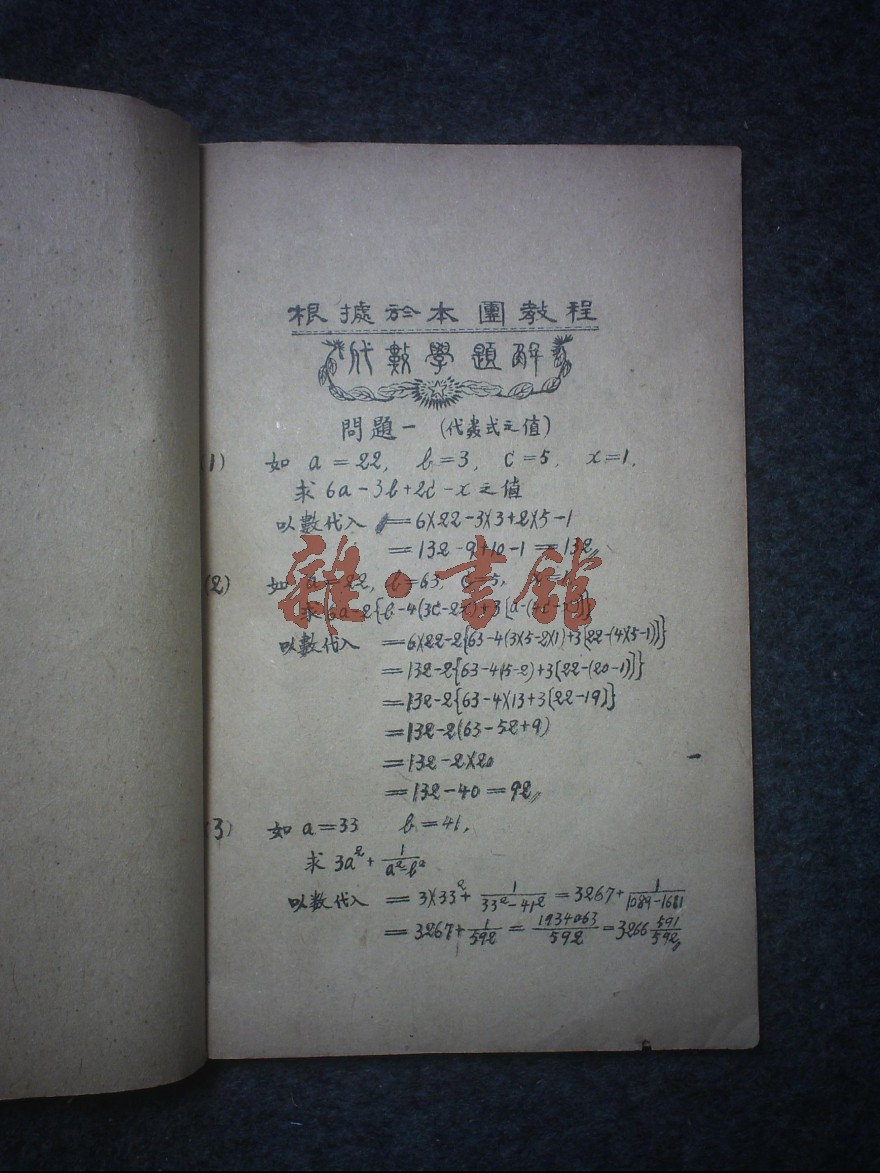 根據於本團教程
代數學題解
問題一 (代數式之值)
(1) 如 a=22, b=3, c=5, x=1,
求 6a-3b+2c-x 之值
以數代入 =6×22-3×3+2×5-1
=132-9+10-1=132
(2) 如 a=22, b=63, c=5,
求 6a-2{b-4(3c-2x)+3[a-(4c-x)]}
以數代入 =6×22-2{63-4(3×5-2×1)+3[22-(4×5-1)]}
=132-2{63-4(15-2)+3[22-(20-1)]}
=132-2{63-4×13+3[22-19]}
=132-2(63-52+9)
=132-2×20
=132-40=92
(3) 如 a=33 b=41,
求 3a²+1/(a²-b²)
以數代入 =3×33²+1/(33²-41²)=3267+1/(1089-1681)
=3267+1/592=1934063/592=3266 591/592
雜·書館